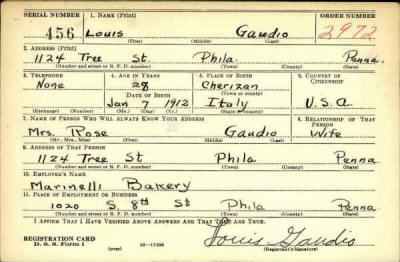 SERIAL NUMBER 1. NAME (Print) ORDER NUMBER
456 Louis Gaudio 2972
(First) (Middle) (Last)
2. ADDRESS (Print)
1124 Tree St. Phila. Penna.
(Number and street or R. F. D. number) (Town) (County) (State)
3. TELEPHONE 4. AGE IN YEARS 5. PLACE OF BIRTH 6. COUNTRY OF CITIZENSHIP
None 28 Cherizan
DATE OF BIRTH (Town or county)
Jan 7 1912 Italy U.S.A.
(Exchange) (Number) (Mo.) (Day) (Yr.) (State or country)
7. NAME OF PERSON WHO WILL ALWAYS KNOW YOUR ADDRESS 8. RELATIONSHIP OF THAT PERSON
Mrs. Rose Gaudio Wife
(Mr., Mrs., Miss) (First) (Middle) (Last)
9. ADDRESS OF THAT PERSON
1124 Tree St Phila Penna
(Number and street or R. F. D. number) (Town) (County) (State)
10. EMPLOYER'S NAME
Marinelli Bakery
11. PLACE OF EMPLOYMENT OR BUSINESS
1020 S. 8th St Phila Penna
(Number and street or R. F. D. number) (Town) (County) (State)
I AFFIRM THAT I HAVE VERIFIED ABOVE ANSWERS AND THAT THEY ARE TRUE.
REGISTRATION CARD
D. S. S. Form 1 (over) 16-17105 Louis Gaudio
(Registrant's signature)